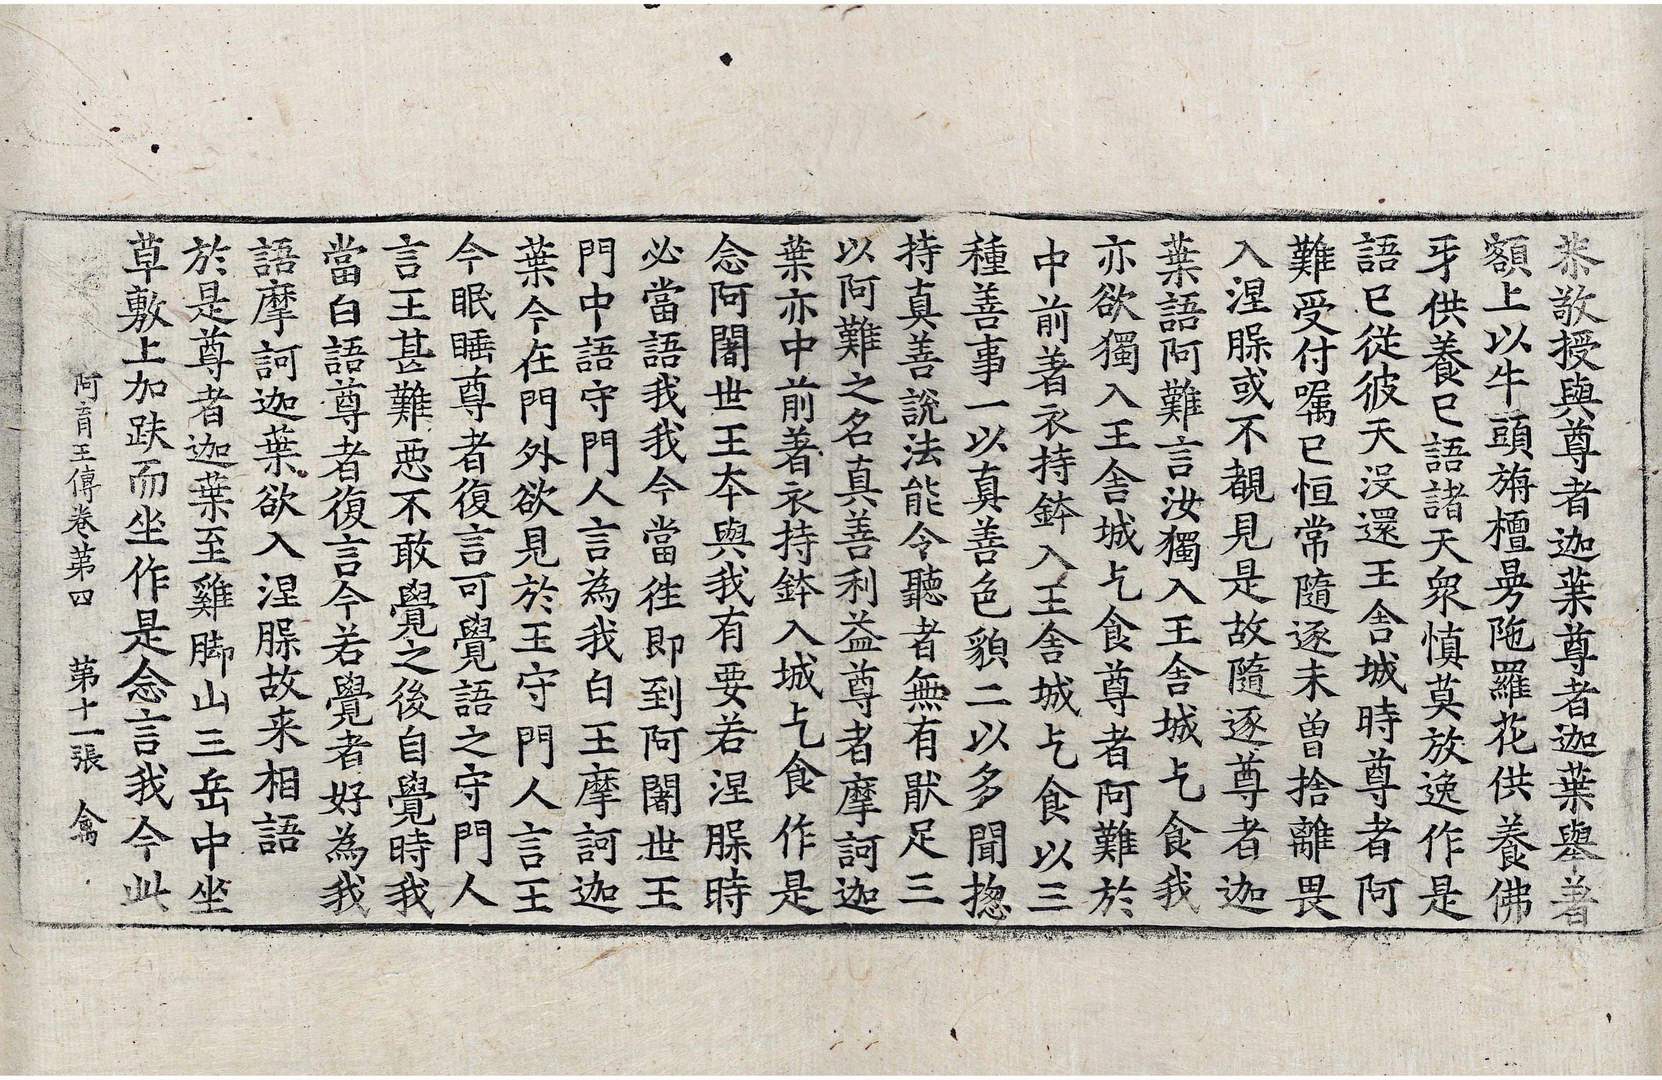 恭敬授與尊者迦葉尊者迦葉舉著
額上以牛頭旃檀曼陁羅花供養佛
牙供養已語諸天衆慎莫放逸作是
語已從彼天沒還王舍城時尊者阿
難受付囑已恒常隨逐未曽捨離畏
入涅脲或不覩見是故隨逐尊者迦
葉語阿難言汝獨入王舍城乞食我
亦欲獨入王舍城乞食尊者阿難於
中前著衣持鉢入王舍城乞食以三
種善事一以真善色貌二以多聞揔
持真善說法能令聽者無有猒足三
以阿難之名真善利益尊者摩訶迦
葉亦中前著衣持鉢入城乞食作是
念阿闍世王夲與我有要若涅脲時
必當語我我今當徃即到阿闍世王
門中語守門人言為我白王摩訶迦
葉今在門外欲見於王守門人言王
今眠睡尊者復言可覺語之守門人
言王甚難惡不敢覺之後自覺時我
當白語尊者復言今若覺者好為我
語摩訶迦葉欲入涅脲故来相語
於是尊者迦葉至雞脚山三岳中坐
草敷上加趺而坐作是念言我今此
阿育王傳卷第四 第十一張 禽